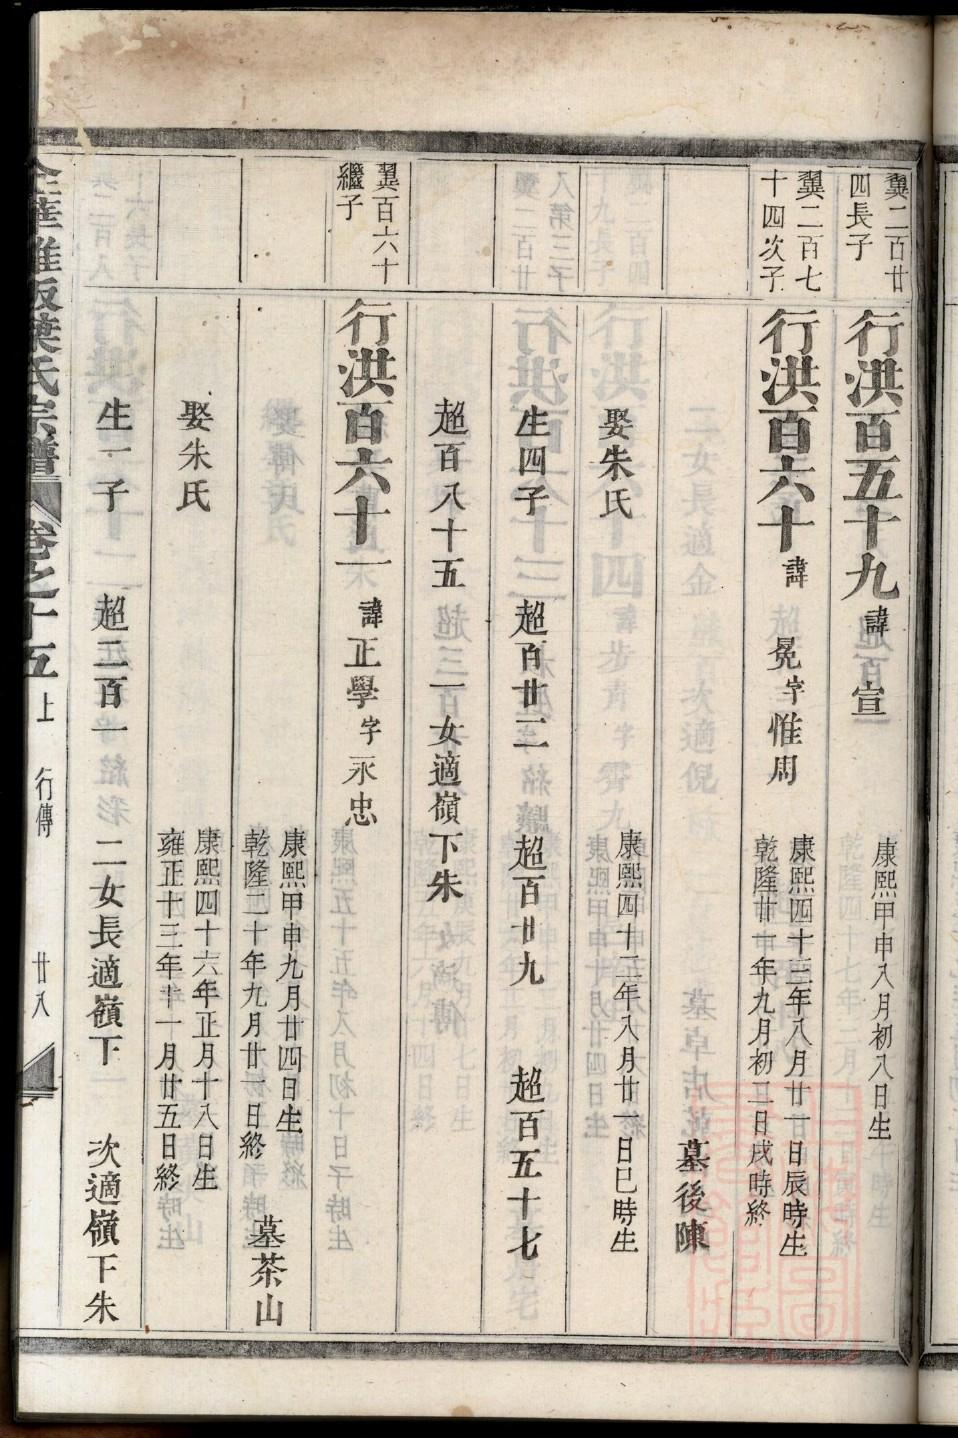 翼二百廿
四長子
行洪百五十九 諱宣
康熙甲申八月初八日生
翼二百七
十四次子
行洪百六十 諱晃字惟周
康熙四十三年八月廿一日辰時生
乾隆廿年九月初三日戌時終
墓後陳
娶朱氏
康熙四十二年八月廿一日巳時生
生四子 超百廿二 超百廿九 超百五十七
超百八十五 一女適嶺下朱
翼百六十
繼子
行洪百六十一 諱正學字永忠
康熙甲申九月廿四日生
乾隆二十年九月廿一日終
墓茶山
娶朱氏
康熙四十六年正月十八日生
雍正十三年十一月廿五日終
生一子 超二百一 二女長適嶺下 次適嶺下朱
葉氏宗譜 卷之十五上 行傳 廿八